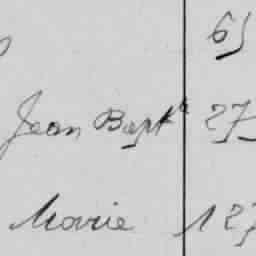 65
Jean Bapt^te 275
Marie 127